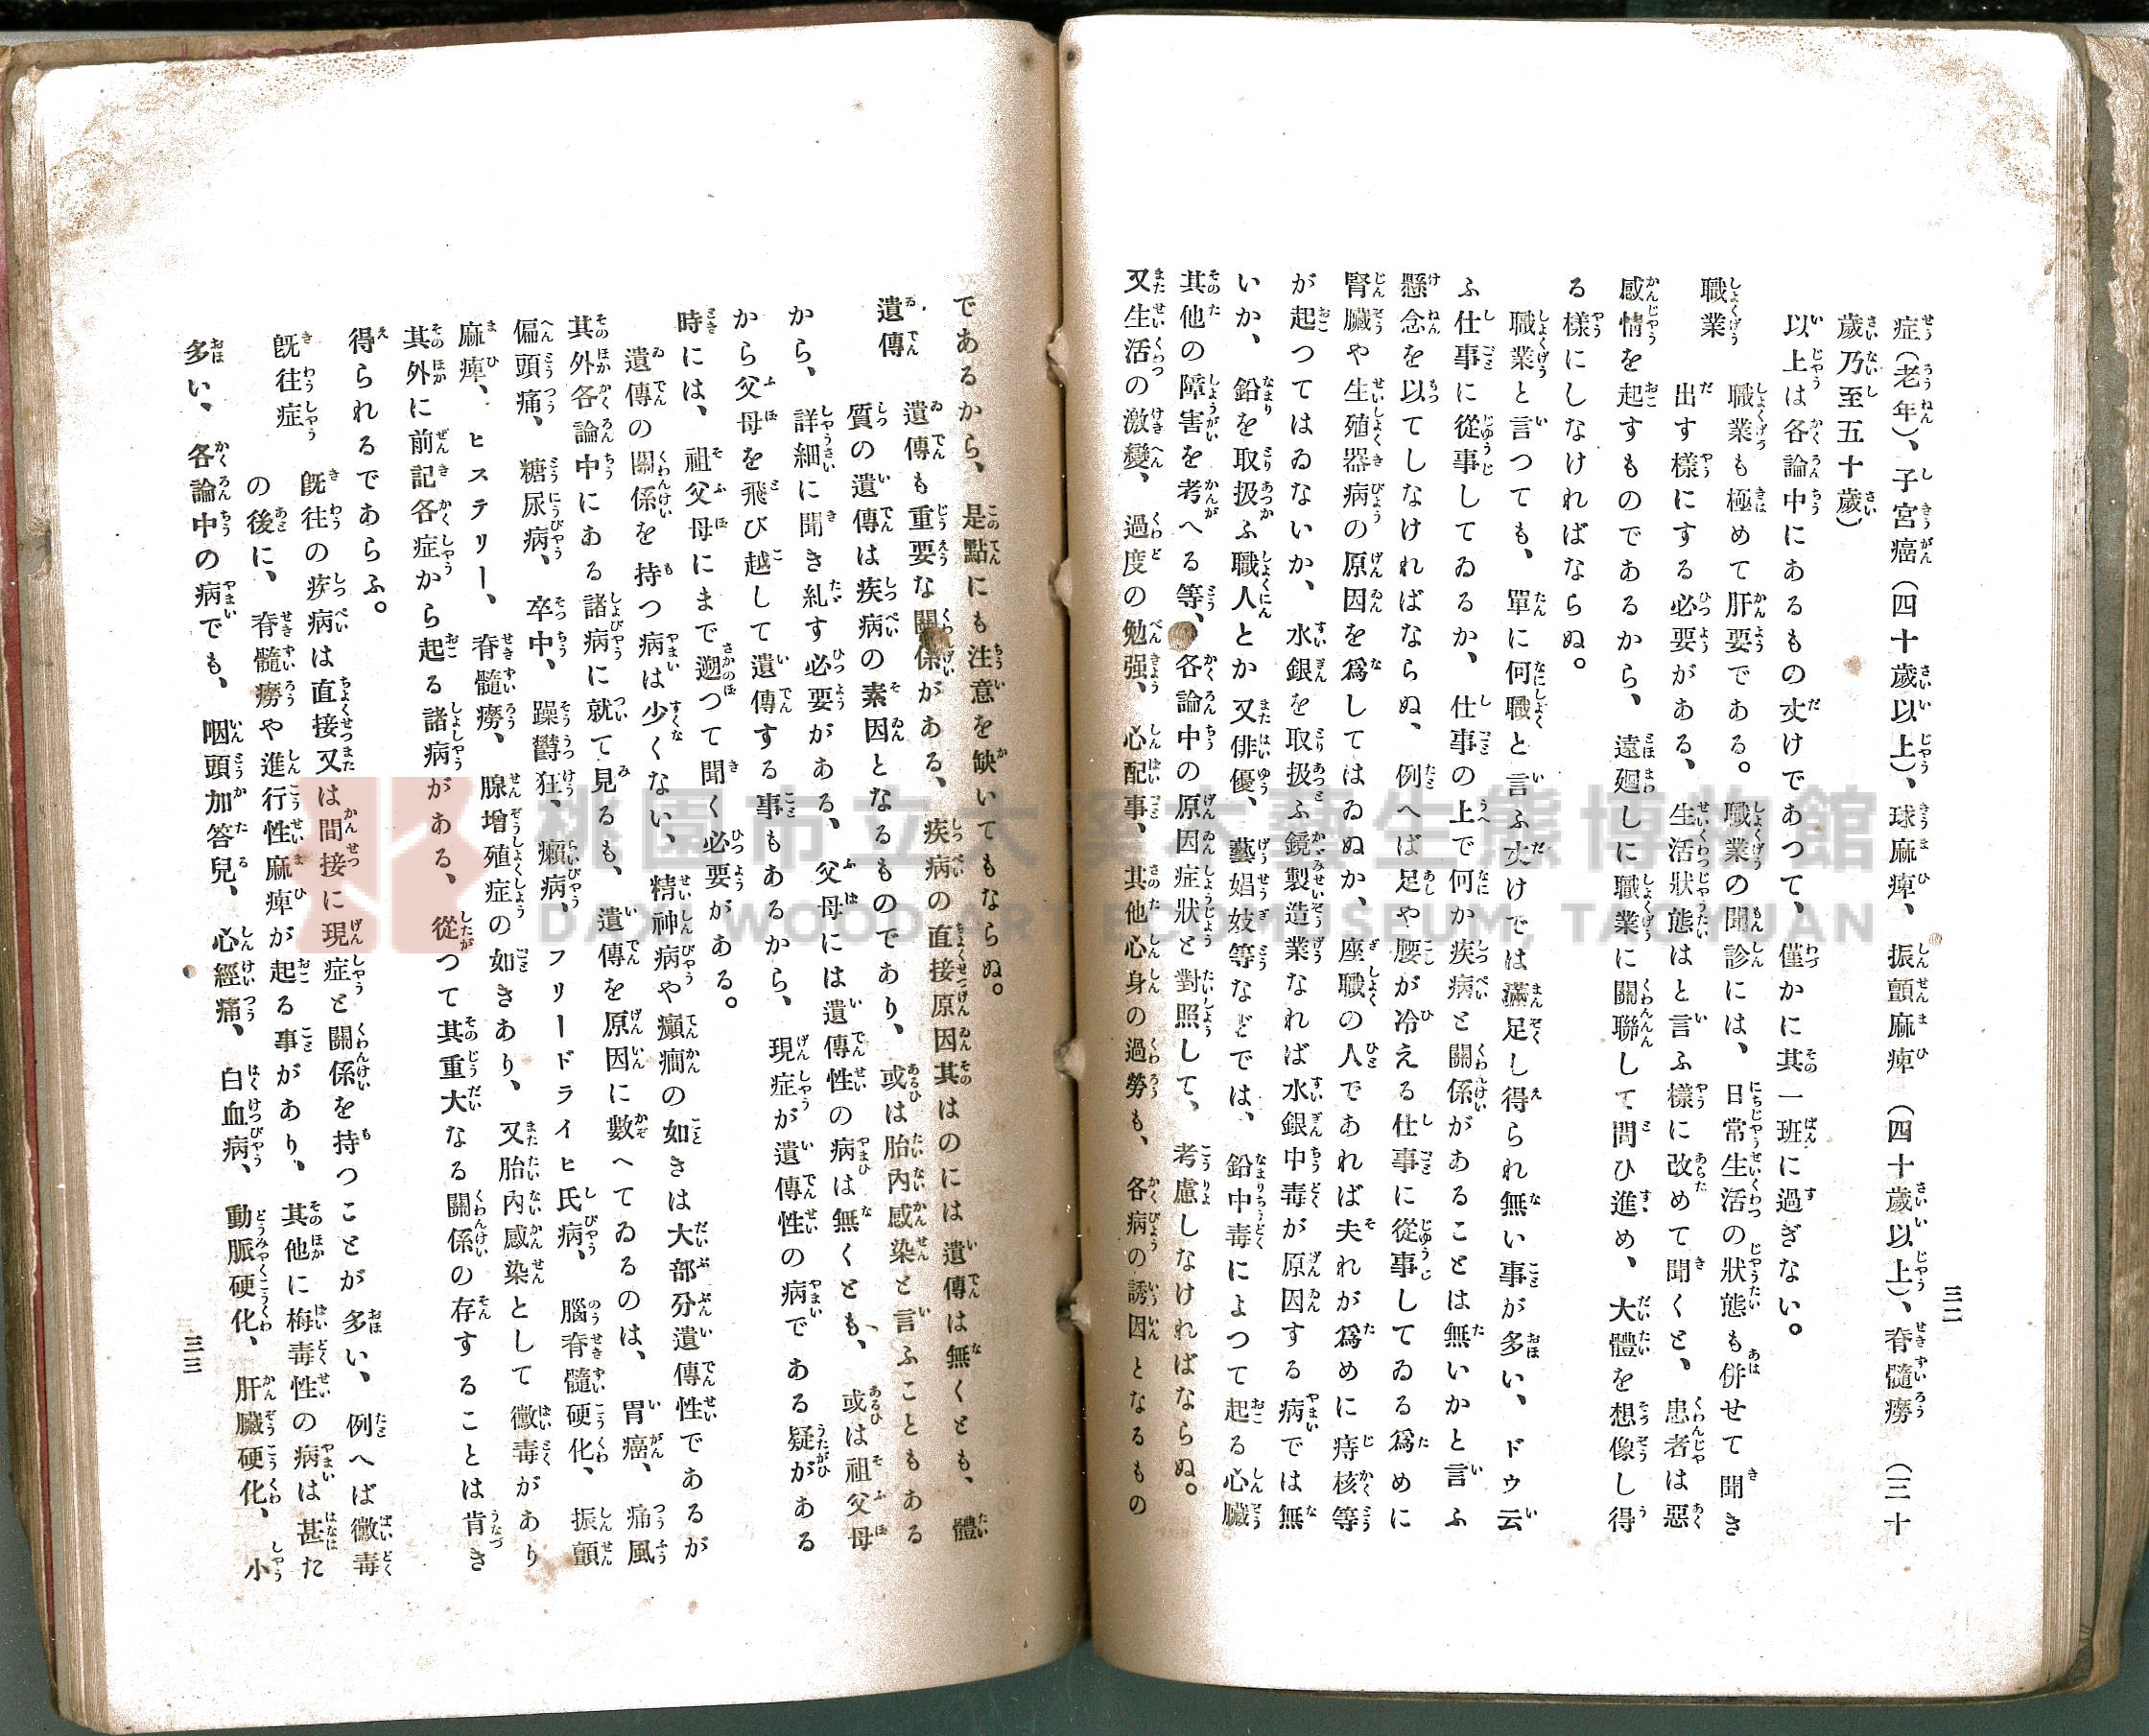 三二
症(老年)、子宮癌(四十歲以上)、球麻痺、振顫麻痺(四十歲以上)、脊髓癆(三十
歲乃至五十歲)
以上は各論中にあるもの丈けであつて、僅かに其一班に過ぎない。
職業
職業も極めて肝要である。職業の聞診には、日常生活の狀態も併せて聞き
出す樣にする必要がある、生活狀態はと言ふ樣に改めて聞くと、患者は惡
感情を起すものであるから、遠廻しに職業に關聯して問ひ進め、大體を想像し得
る樣にしなければならぬ。
職業と言つても、單に何職と言ふ丈けでは滿足し得られ無い事が多い、ドゥ云
ふ仕事に從事してゐるか、仕事の上で何か疾病と關係があることは無いかと言ふ
懸念を以てしなければならぬ、例へば足や腰が冷える仕事に從事してゐる爲めに
腎臟や生殖器病の原因を爲してはゐぬか、座職の人であれば夫れが爲めに痔核等
が起つてはゐないか、水銀を取扱ふ鏡製造業なれば水銀中毒が原因する病では無
いか、鉛を取扱ふ職人とか又俳優、藝娼妓等などでは、鉛中毒によつて起る心臟
其他の障害を考へる等、各論中の原因症狀と對照して、考慮しなければならぬ。
又生活の激變、過度の勉强、心配事、其他心身の過勞も、各病の誘因となるもの
であるから、是點にも注意を缺いてもならぬ。
遺傳
遺傳も重要な關係がある、疾病の直接原因其はのには遺傳は無くとも、體
質の遺傳は疾病の素因となるものであり、或は胎內感染と言ふこともある
から、詳細に聞き糺す必要がある、父母には遺傳性の病は無くとも、或は祖父母
から父母を飛び越して遺傳する事もあるから、現症が遺傳性の病である疑がある
時には、祖父母にまで遡つて聞く必要がある。
遺傳の關係を持つ病は少くない、精神病や癲癇の如きは大部分遺傳性であるが
其外各論中にある諸病に就て見るも、遺傳を原因に數へてゐるのは、胃癌、痛風
偏頭痛、糖尿病、卒中、躁鬱狂、癩病、フリードライヒ氏病、腦脊髓硬化、振顫
麻痺、ヒステリー、脊髓癆、腺增殖症の如きあり、又胎內感染として黴毒があり
其外に前記各症から起る諸病がある、從つて其重大なる關係の存することは肯き
得られるであらふ。
旣往症
旣往の疾病は直接又は間接に現症と關係を持つことが多い、例へば黴毒
の後に、脊髓癆や進行性麻痺が起る事があり、其他に梅毒性の病は甚だ
多い、各論中の病でも、咽頭加答兒、心經痛、白血病、動脈硬化、肝臟硬化、小
三三
桃園市立大溪木藝生態博物館
DAXI WOOD ART ECOMUSEUM, TAOYUAN